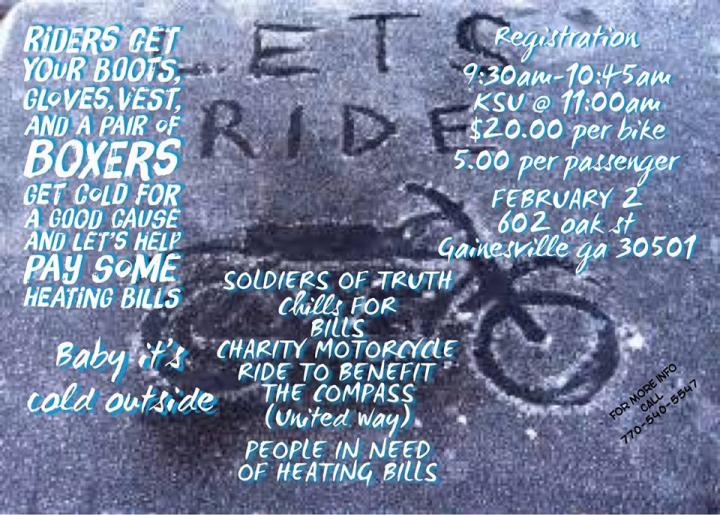 LETS
RIDE
RIDERS GET
YOUR BOOTS,
GLOVES, VEST,
AND A PAIR OF
BOXERS
GET COLD FOR
A GOOD CAUSE
AND LET'S HELP
PAY SOME
HEATING BILLS
Baby it's
cold outside
SOLDIERS OF TRUTH
Chills FOR
BILLS
CHARITY MOTORCYCLE
RIDE TO BENEFIT
THE COMPASS
(United Way)
PEOPLE IN NEED
OF HEATING BILLS
Registration
9:30am-10:45am
KSU @ 11:00am
$20.00 per bike
5.00 per passenger
FEBRUARY 2
602 oak st
Gainesville ga 30501
FOR MORE INFO
CALL
770-540-5547